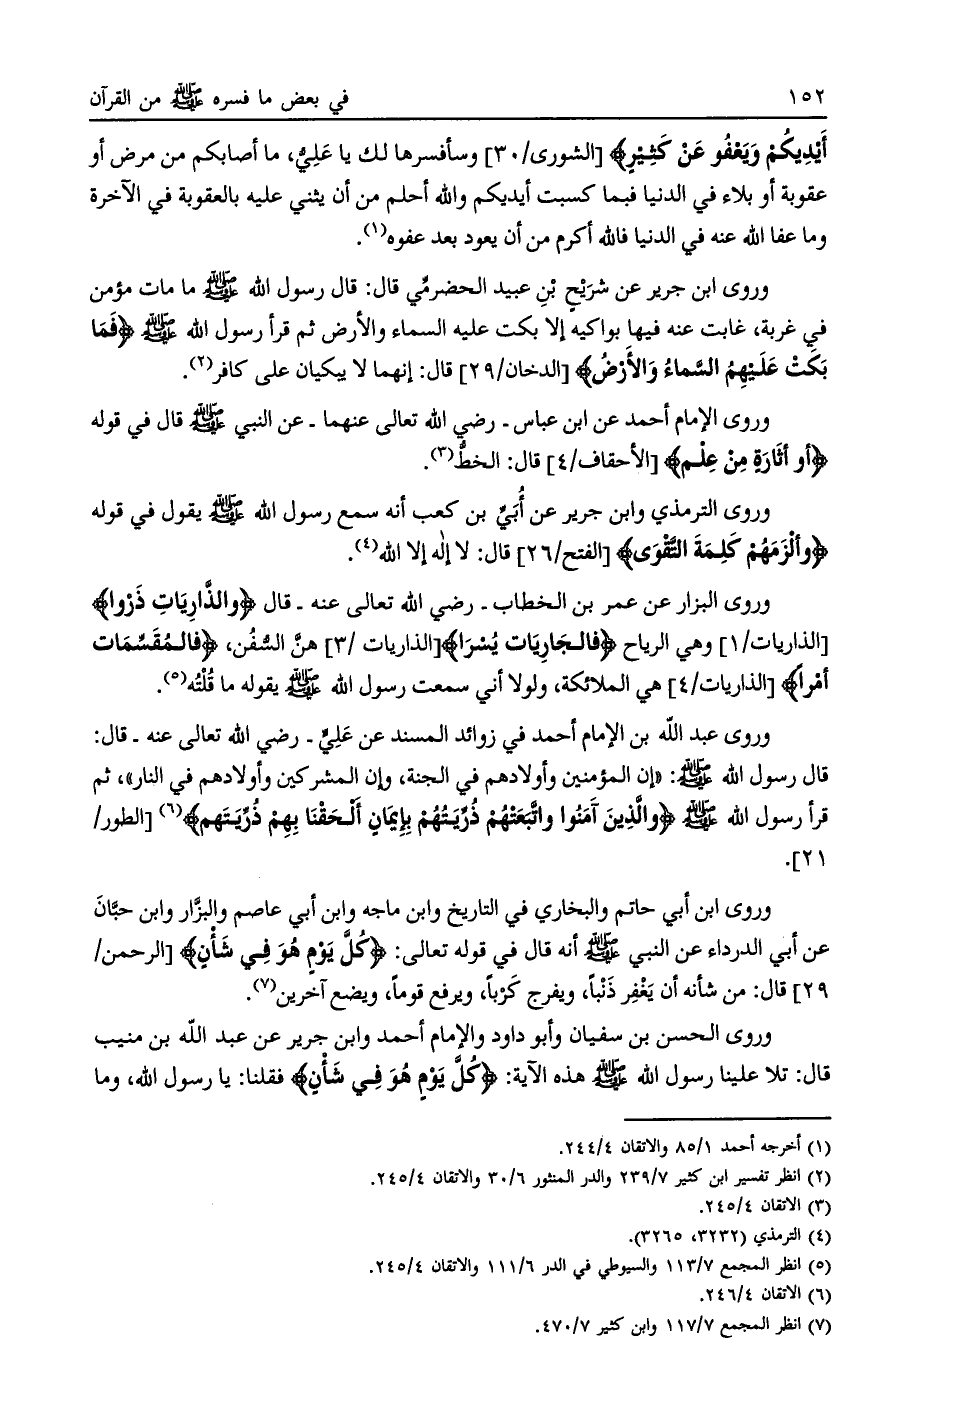 ١٥٢ في بعض ما فسره ﷺ من القرآن
أَيْدِيكُمْ وَيَعْفُو عَنْ كَثِيْرٍ﴾ [الشورى/٣٠] وسأفسرها لك يا عَلِيُّ، ما أصابكم من مرض أو
عقوبة أو بلاء في الدنيا فبما كسبت أيديكم والله أحلم من أن يثني عليه بالعقوبة في الآخرة
وما عفا الله عنه في الدنيا فالله أكرم من أن يعود بعد عفوه(١).
وروى ابن جرير عن شرَيْحِ بْنِ عبيد الحضرميِّ قال: قال رسول الله ﷺ ما مات مؤمن
في غربة، غابت عنه فيها بواكيه إلا بكت عليه السماء والأرض ثم قرأ رسول الله ﷺ ﴿فَمَا
بَكَتْ عَلَيْهِمُ السَّماءُ وَالأَرَضُ﴾ [الدخان/٢٩] قال: إنهما لا يبكيان على كافر(٢).
وروى الإمام أحمد عن ابن عباس ـ رضي الله تعالى عنهما ـ عن النبي ﷺ قال في قوله
﴿أو أثَارَةٍ مِنْ عِلْمٍ﴾ [الأحقاف/٤] قال: الخطُّ(٣).
وروى الترمذي وابن جرير عن أُبَيِّ بن كعب أنه سمع رسول الله ﷺ يقول في قوله
﴿وألْزَمَهُمْ كَلِمَةَ التَّقْوَى﴾ [الفتح/٢٦] قال: لا إلٰه إلا الله(٤).
وروى البزار عن عمر بن الخطاب ـ رضي الله تعالى عنه ـ قال ﴿والذَّارِيَاتِ ذَرْوا﴾
[الذاريات/١] وهي الرياح ﴿فالجَارِيَات يُسْرَا﴾[الذاريات /٣] هنَّ السُّفُن، ﴿فالمُقَسِّمَات
أمْراً﴾ [الذاريات/٤] هي الملائكة، ولولا أني سمعت رسول الله ﷺ يقوله ما قُلْتُه(٥).
وروى عبد اللّه بن الإمام أحمد في زوائد المسند عن عَلِيِّ ـ رضي الله تعالى عنه ـ قال:
قال رسول الله ﷺ: «إن المؤمنين وأولادهم في الجنة، وإن المشركين وأولادهم في النار»، ثم
قرأ رسول الله ﷺ ﴿والَّذِينَ آمَنُوا واتَّبَعَتْهُمْ ذُرِّيَتُهُمْ بِإِيمَانٍ أَلْحَقْنَا بِهِمْ ذُرِّيَتَهم﴾(٦) [الطور/
٢١].
وروى ابن أبي حاتم والبخاري في التاريخ وابن ماجه وابن أبي عاصم والبزَّار وابن حبَّانَ
عن أبي الدرداء عن النبي ﷺ أنه قال في قوله تعالى: ﴿كُلَّ يَوْمٍ هُوَ فِي شَأْنٍ﴾ [الرحمن/
٢٩] قال: من شأنه أن يَغْفِر ذَنْباً، ويفرج كَرْباً، ويرفع قوماً، ويضع آخرين(٧).
وروى الحسن بن سفيان وأبو داود والإمام أحمد وابن جرير عن عبد اللّه بن منيب
قال: تلا علينا رسول الله ﷺ هذه الآية: ﴿كُلَّ يَوْمٍ هُوَ فِي شَأْنٍ﴾ فقلنا: يا رسول الله، وما
(١) أخرجه أحمد ٨٥/١ والاتقان ٢٤٤/٤.
(٢) انظر تفسير ابن كثير ٢٣٩/٧ والدر المنثور ٣٠/٦ والاتقان ٢٤٥/٤.
(٣) الاتقان ٢٤٥/٤.
(٤) الترمذي (٣٢٣٢، ٣٢٦٥).
(٥) انظر المجمع ١١٣/٧ والسيوطي في الدر ١١١/٦ والاتقان ٢٤٥/٤.
(٦) الاتقان ٢٤٦/٤.
(٧) انظر المجمع ١١٧/٧ وابن كثير ٤٧٠/٧.